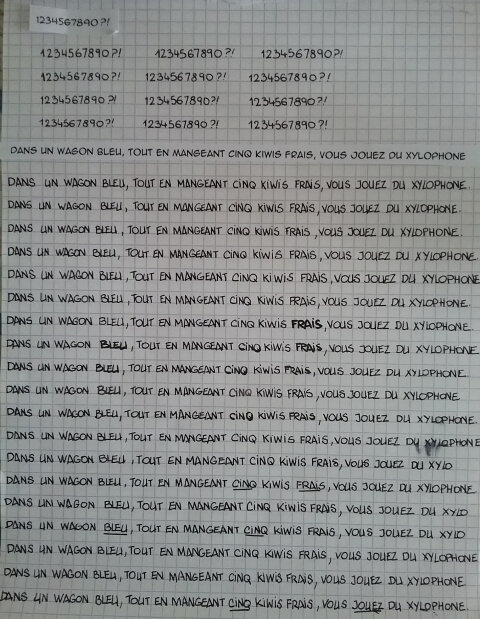 1234567890?!
1234567890?! 1234567890?! 1234567890?!
1234567890?! 1234567890?! 1234567890?!
1234567890?! 1234567890?! 1234567890?!
1234567890?! 1234567890?! 1234567890?!
DANS UN WAGON BLEU, TOUT EN MANGEANT CINQ KIWIS FRAIS, VOUS JOUEZ DU XYLOPHONE
DANS UN WAGON BLEU, TOUT EN MANGEANT CINQ KIWIS FRAIS, VOUS JOUEZ DU XYLOPHONE.
DANS UN WAGON BLEU, TOUT EN MANGEANT CINQ KIWIS FRAIS, VOUS JOUEZ DU XYLOPHONE.
DANS UN WAGON BLEU, TOUT EN MANGEANT CINQ KIWIS FRAIS, VOUS JOUEZ DU XYLOPHONE.
DANS UN WAGON BLEU, TOUT EN MANGEANT CINQ KIWIS FRAIS, VOUS JOUEZ DU XYLOPHONE.
DANS UN WAGON BLEU, TOUT EN MANGEANT CINQ KIWIS FRAIS, VOUS JOUEZ DU XYLOPHONE
DANS UN WAGON BLEU, TOUT EN MANGEANT CINQ KIWIS FRAIS, VOUS JOUEZ DU XYLOPHONE.
DANS UN WAGON BLEU, TOUT EN MANGEANT CINQ KIWIS FRAIS, VOUS JOUEZ DU XYLOPHONE.
DANS UN WAGON BLEU, TOUT EN MANGEANT CINQ KIWIS FRAIS, VOUS JOUEZ DU XYLOPHONE
DANS UN WAGON BLEU, TOUT EN MANGEANT CINQ KIWIS FRAIS, VOUS JOUEZ DU XYLOPHONE.
DANS UN WAGON BLEU, TOUT EN MANGEANT CINQ KIWIS FRAIS, VOUS JOUEZ DU XYLOPHONE
DANS UN WAGON BLEU, TOUT EN MANGEANT CINQ KIWIS FRAIS, VOUS JOUEZ DU XYLOPHONE.
DANS UN WAGON BLEU, TOUT EN MANGEANT CINQ KIWIS FRAIS, VOUS JOUEZ DU XYLOPHONE
DANS UN WAGON BLEU, TOUT EN MANGEANT CINQ KIWIS FRAIS, VOUS JOUEZ DU XYLO
DANS UN WAGON BLEU, TOUT EN MANGEANT CINQ KIWIS FRAIS, VOUS JOUEZ DU XYLOPHONE
DANS UN WAGON BLEU, TOUT EN MANGEANT CINQ KIWIS FRAIS, VOUS JOUEZ DU XYLO
DANS UN WAGON BLEU, TOUT EN MANGEANT CINQ KIWIS FRAIS, VOUS JOUEZ DU XYLO
DANS UN WAGON BLEU, TOUT EN MANGEANT CINQ KIWIS FRAIS, VOUS JOUEZ DU XYLOPHONE
DANS UN WAGON BLEU, TOUT EN MANGEANT CINQ KIWIS FRAIS, VOUS JOUEZ DU XYLOPHONE.
DANS UN WAGON BLEU, TOUT EN MANGEANT CINQ KIWIS FRAIS, VOUS JOUEZ DU XYLOPHONE.